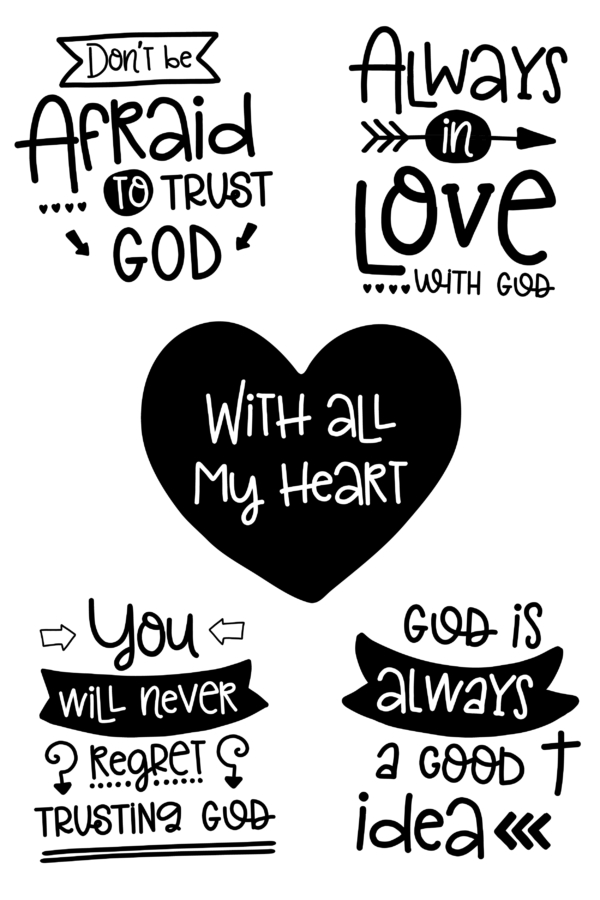 Don't be
Afraid
TO TRUST
GOD
Always
in
Love
WITH GOD
With all
My Heart
You
will never
Regret
TRUSTING GOD
GOD is
always
a GOOD
idea